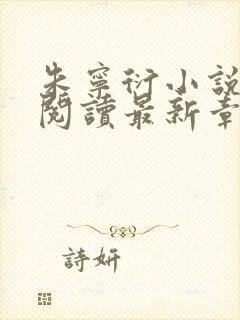 朱寧衍小說
閱讀最新章
詩妍